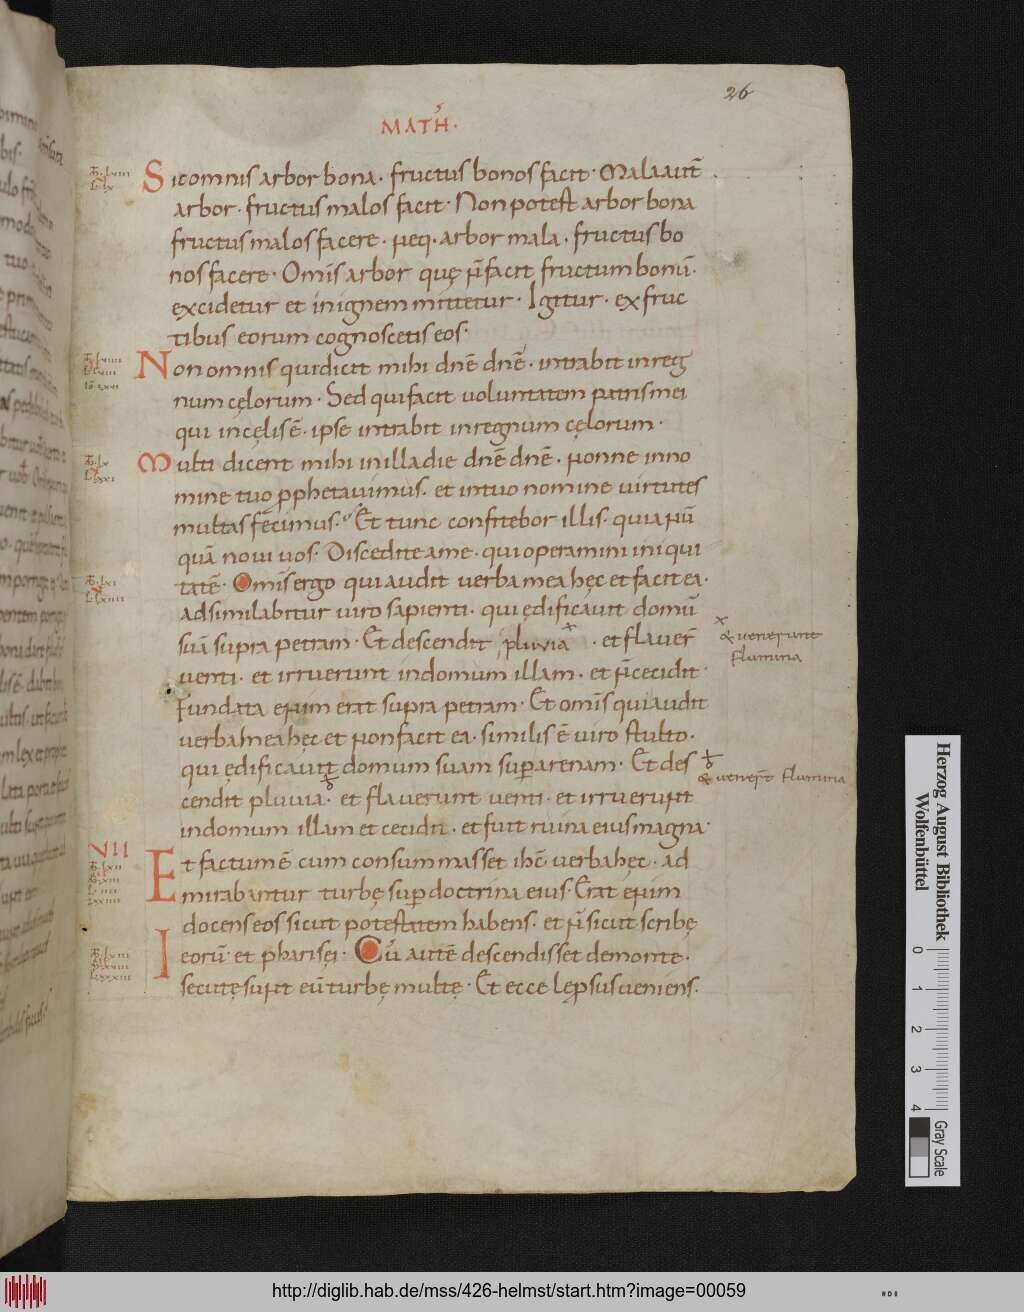 26
MATH̄.
Sic omnis arbor bona. fructus bonos facit. Mala aut̄
arbor. fructus malos facit. Non potest arbor bona
fructus malos facere. neq. arbor mala. fructus bo
nos facere. Om̄s arbor quę n̄ facit fructum bonū.
excidetur et in ignem mittetur. Igitur. ex fruc
tibus eorum cognoscetis eos.
Non omnis qui dicit mihi dn̄e dn̄e. intrabit in reg
num cęlorum. Sed qui facit uoluntatem patris mei
qui in cęlis ē. ipse intrabit in regnum cęlorum.
Multi dicent mihi in illa die dn̄e dn̄e. nonne in no
mine tuo pphetauimus. et in tuo nomine uirtutes
multas fecimus. Et tunc confitebor illis. quia nū
quā noui uos. Discedite a me. qui operamini iniqui
tatē. Om̄is ergo qui audit uerba mea hęc et facit ea.
adsimilabitur uiro sapienti. qui ędificauit domū
suā supra petram. Et descendit pluvia. et flauer̄
x & venerunt
flumina
venti. et irruerunt in domum illam. et n̄ cecidit.
Fundata enim erat supra petram. Et om̄is qui audit
uerba mea hęc et non facit ea. similis ē uiro stulto.
qui ędificauit domum suam sup arenam. Et des
& vener̄t flumina
cendit pluuia. et flauerunt uenti. et irruerunt
in domum illam et cecidit. et fuit ruina eius magna.
VII
Et factum ē cum consummasset ihc̄ uerba hęc. ad
mirabantur turbę sup doctrina eius. Erat enim
docens eos sicut potestatem habens. et n̄ sicut scribę
eorū. et pharisęi. Cū autē descendisset de monte.
secutę sunt eū turbę multę. Et ecce lęprsus ueniens.
Herzog August Bibliothek
Wolfenbüttel
0 1 2 3 4
Gray Scale
http://diglib.hab.de/mss/426-helmst/start.htm?image=00059